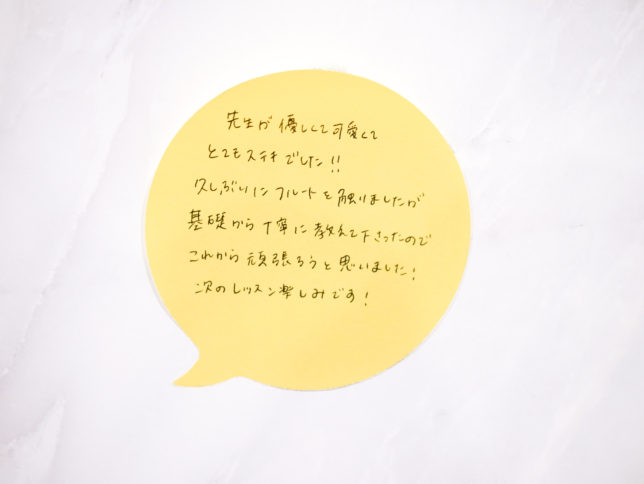 先生が優しくて可愛くて
とてもステキでした!!
久しぶりにフルートを触りましたが
基礎から丁寧に教えて下さったので
これから頑張ろうと思いました!
次のレッスン楽しみです!